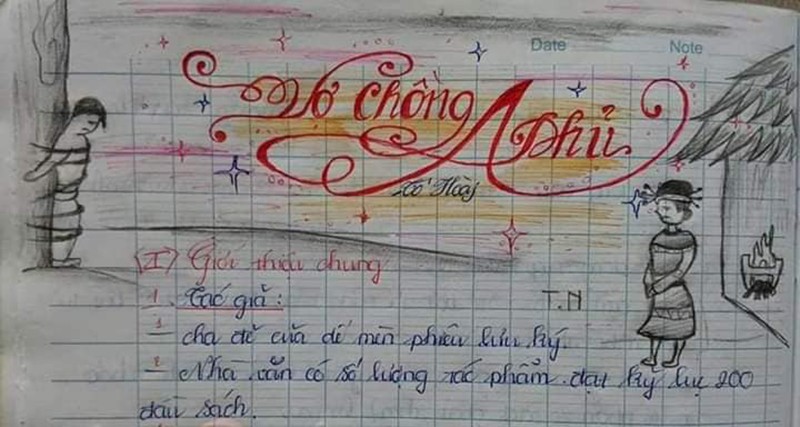 Date Note
Vợ chồng A Phủ
Tô Hoài
I Giới thiệu chung
1. Tác giả:
T.N
– cha đẻ của dế mèn phiêu lưu ký.
– Nhà văn có số lượng tác phẩm đạt kỷ lục 200
đầu sách.